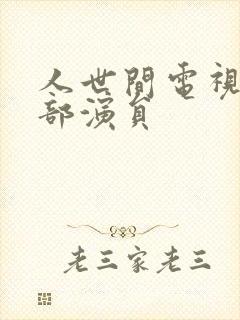 人世間電視
部演員
老三家老三